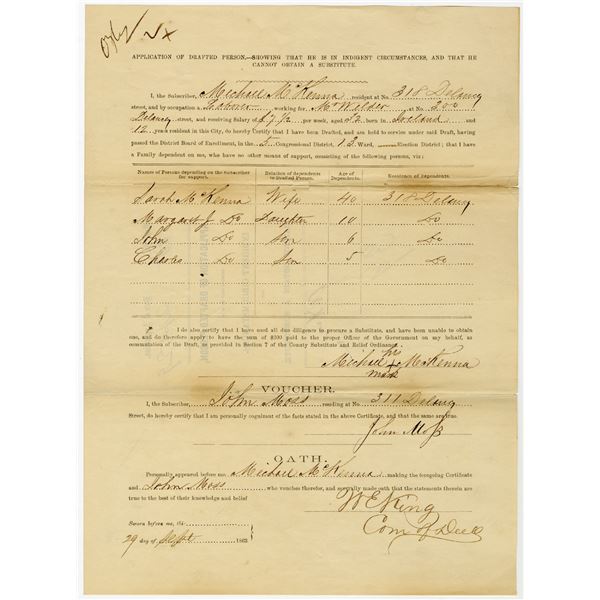 APPLICATION OF DRAFTED PERSON,—SHOWING THAT HE IS IN INDIGENT CIRCUMSTANCES, AND THAT HE
CANNOT OBTAIN A SUBSTITUTE.
I, the Subscriber, Michael McKenna resident at No. 318 Delancy
street, and by occupation a Laborer working for Mr Wilder at No. 300
Delancy street, and receiving Salary of $7 1/2 per week, aged 32 born in Ireland and
12 years resident in this City, do hereby Certify that I have been Drafted, and am held to service under said Draft, having
passed the District Board of Enrollment, in the 5 Congressional District, 13 Ward, Election District; that I have
a Family dependent on me, who have no other means of support, consisting of the following persons, viz:
Names of Persons depending on the Subscriber for support. Relation of dependents to Drafted Person. Age of Dependents. Residence of Dependents.
Sarah McKenna Wife 40 318 Delancy
Margaret J Do Daughter 10 Do
John Do Son 6 Do
Charles Do Son 5 Do
I do also certify that I have used all due diligence to procure a Substitute, and have been unable to obtain
one, and do therefore apply to have the sum of $300 paid to the proper Officer of the Government on my behalf, as
commutation of the Draft, as provided in Section 7 of the County Substitute and Relief Ordinance.
his
Michael + McKenna
mark
VOUCHER.
I, the Subscriber, John Moss residing at No. 311 Delancy
Street, do hereby certify that I am personally cognizant of the facts stated in the above Certificate, and that the same are true.
John Moss
OATH.
Personally appeared before me, Michael McKenna making the foregoing Certificate
and John Moss who vouches therefor, and severally made oath that the statements therein are
true to the best of their knowledge and belief
W E King
Com of Deeds
Sworn before me, this
29 day of Sept 1863